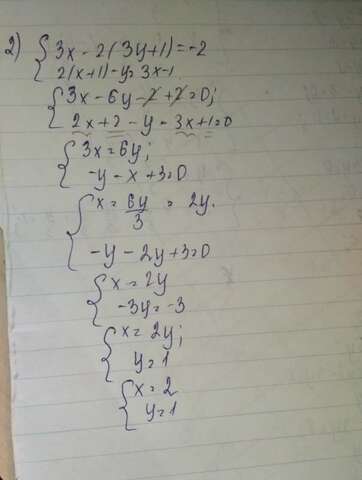 2) { 3x - 2(3y+1) = -2
2(x+1) - y = 3x - 1
{ 3x - 6y - 2 + 2 = 0;
2x + 2 - y - 3x + 1 = 0
{ 3x = 6y;
-y - x + 3 = 0
{ x = 6y/3 = 2y.
-y - 2y + 3 = 0
{ x = 2y
-3y = -3
{ x = 2y;
y = 1
{ x = 2
y = 1